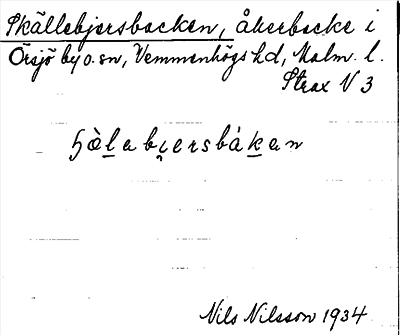 Skällebjersbacken, åkerbacke i
Örsjö by o. sn, Vemmenhögs hd, Malm. l.
Strax V 3
Nils Nilsson 1934